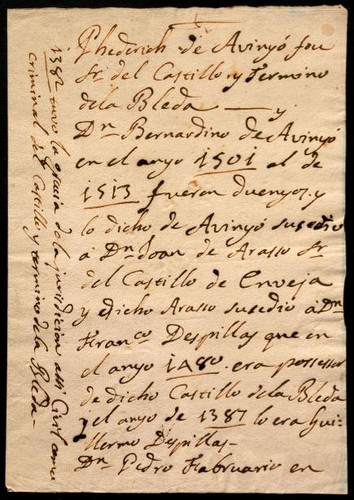 Phederich de Avinyó fou
Sr. del Castillo y Termino
dela Bleda — y
Dn Bernardino de Avinyó
en el anyo 1501 al de
1513 fueron duenyos y
lo dicho de Avinyó susedió
á Dn Joan de Arasso Sr.
del Castillo de Enveja
y dicho Arasso susedio á Dn
Franco Despillas que en
el anyo 1480 era possessor
de dicho Castillo dela Bleda
y el anyo de 1387 lo era Gui-
llermo Despillas-
Dn Pedro Fabruario en
1382 tuvo la gracia de la jurisdiccion assi Civil como
criminal del Castillo y termino de la Bleda-